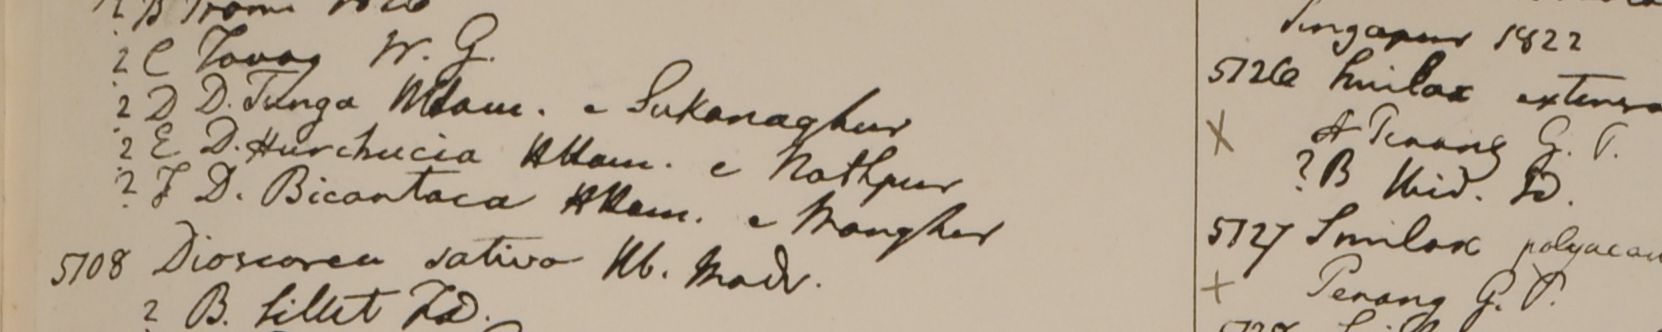 ? B Prome 1826
? C Tavoy W. G.
? D D. Tunga HHam. e Sukanaghur
? E D. Hurchucia HHam. e Nathpur
? F D. Bicantaca HHam. e Mongher
5708 Dioscorea sativa Hb. Madr.
? B. Sillet FD.
Singapur 1822
5726 Smilax extensa
X A Penang G. P.
? B Ibid. ID.
5727 Smilax polyacan
+ Penang G. P.